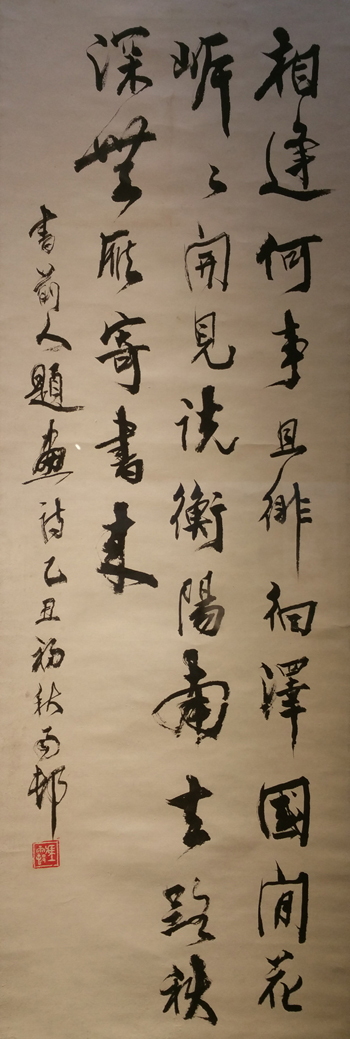 相逢何事且徘徊澤國閒花
岸〻開見説衡陽南去路秋
深無雁寄書来
書前人題畫詩乙丑初秋雨邨